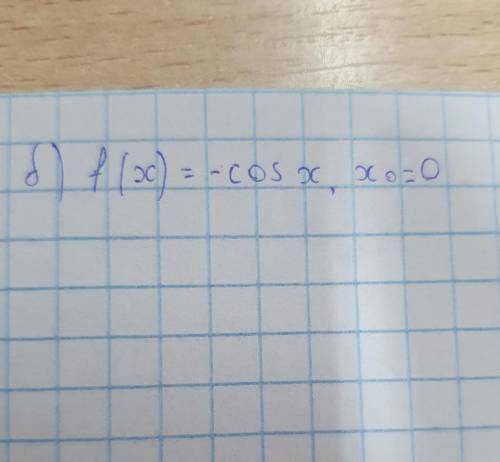 б) f(x) = -cos x, x₀=0